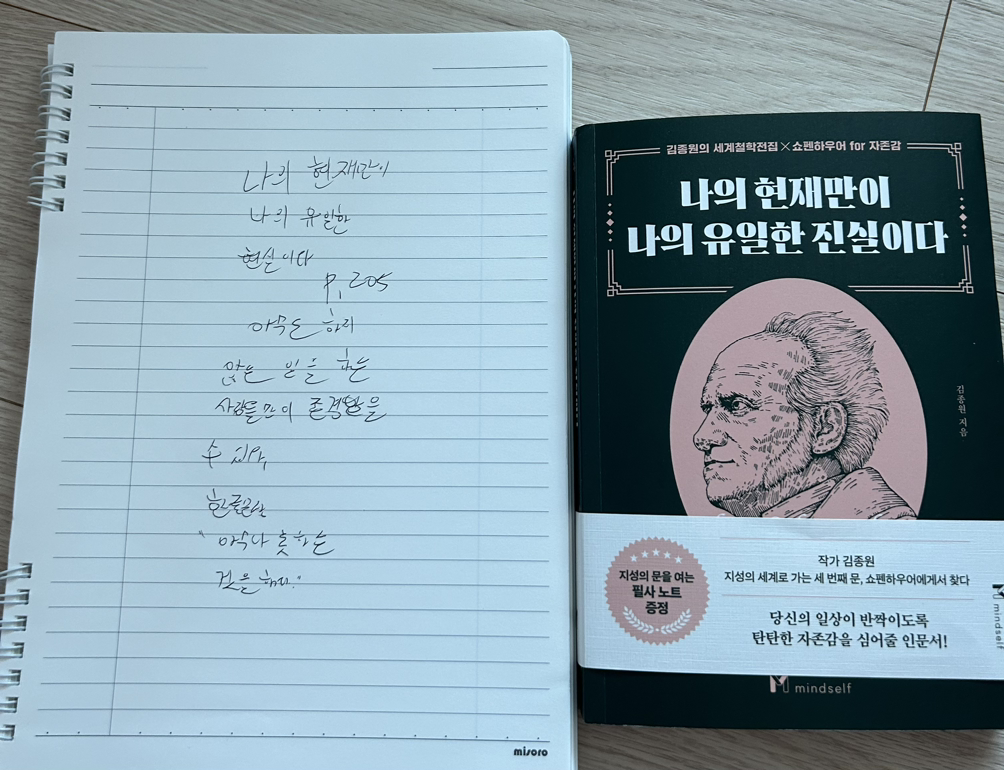 나의 현재만이
나의 유일한
현실이다
P, 205
아무도 하지
않는 일을 하는
사람들만이 존경받을
수 있다,
한글로는
" 아무나 못하는
것을 해라."
misoro
김종원의 세계철학전집×쇼펜하우어 for 자존감
나의 현재만이
나의 유일한 진실이다
김종원 지음
지성의 문을 여는
필사 노트
증정
작가 김종원
지성의 세계로 가는 세 번째 문, 쇼펜하우어에게서 찾다
당신의 일상이 반짝이도록
탄탄한 자존감을 심어줄 인문서!
mindself
mindself